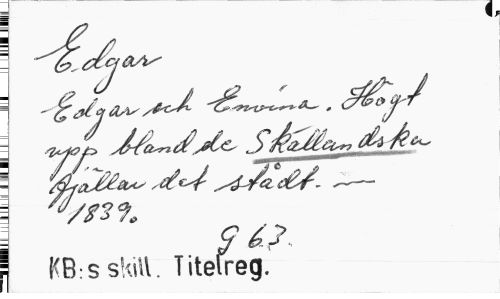 Edgar
Edgar och Envina. Högt
upp bland de Skållandska
fjällar det stådt. —
1839.
G 63.
KB:s skill. Titelreg.